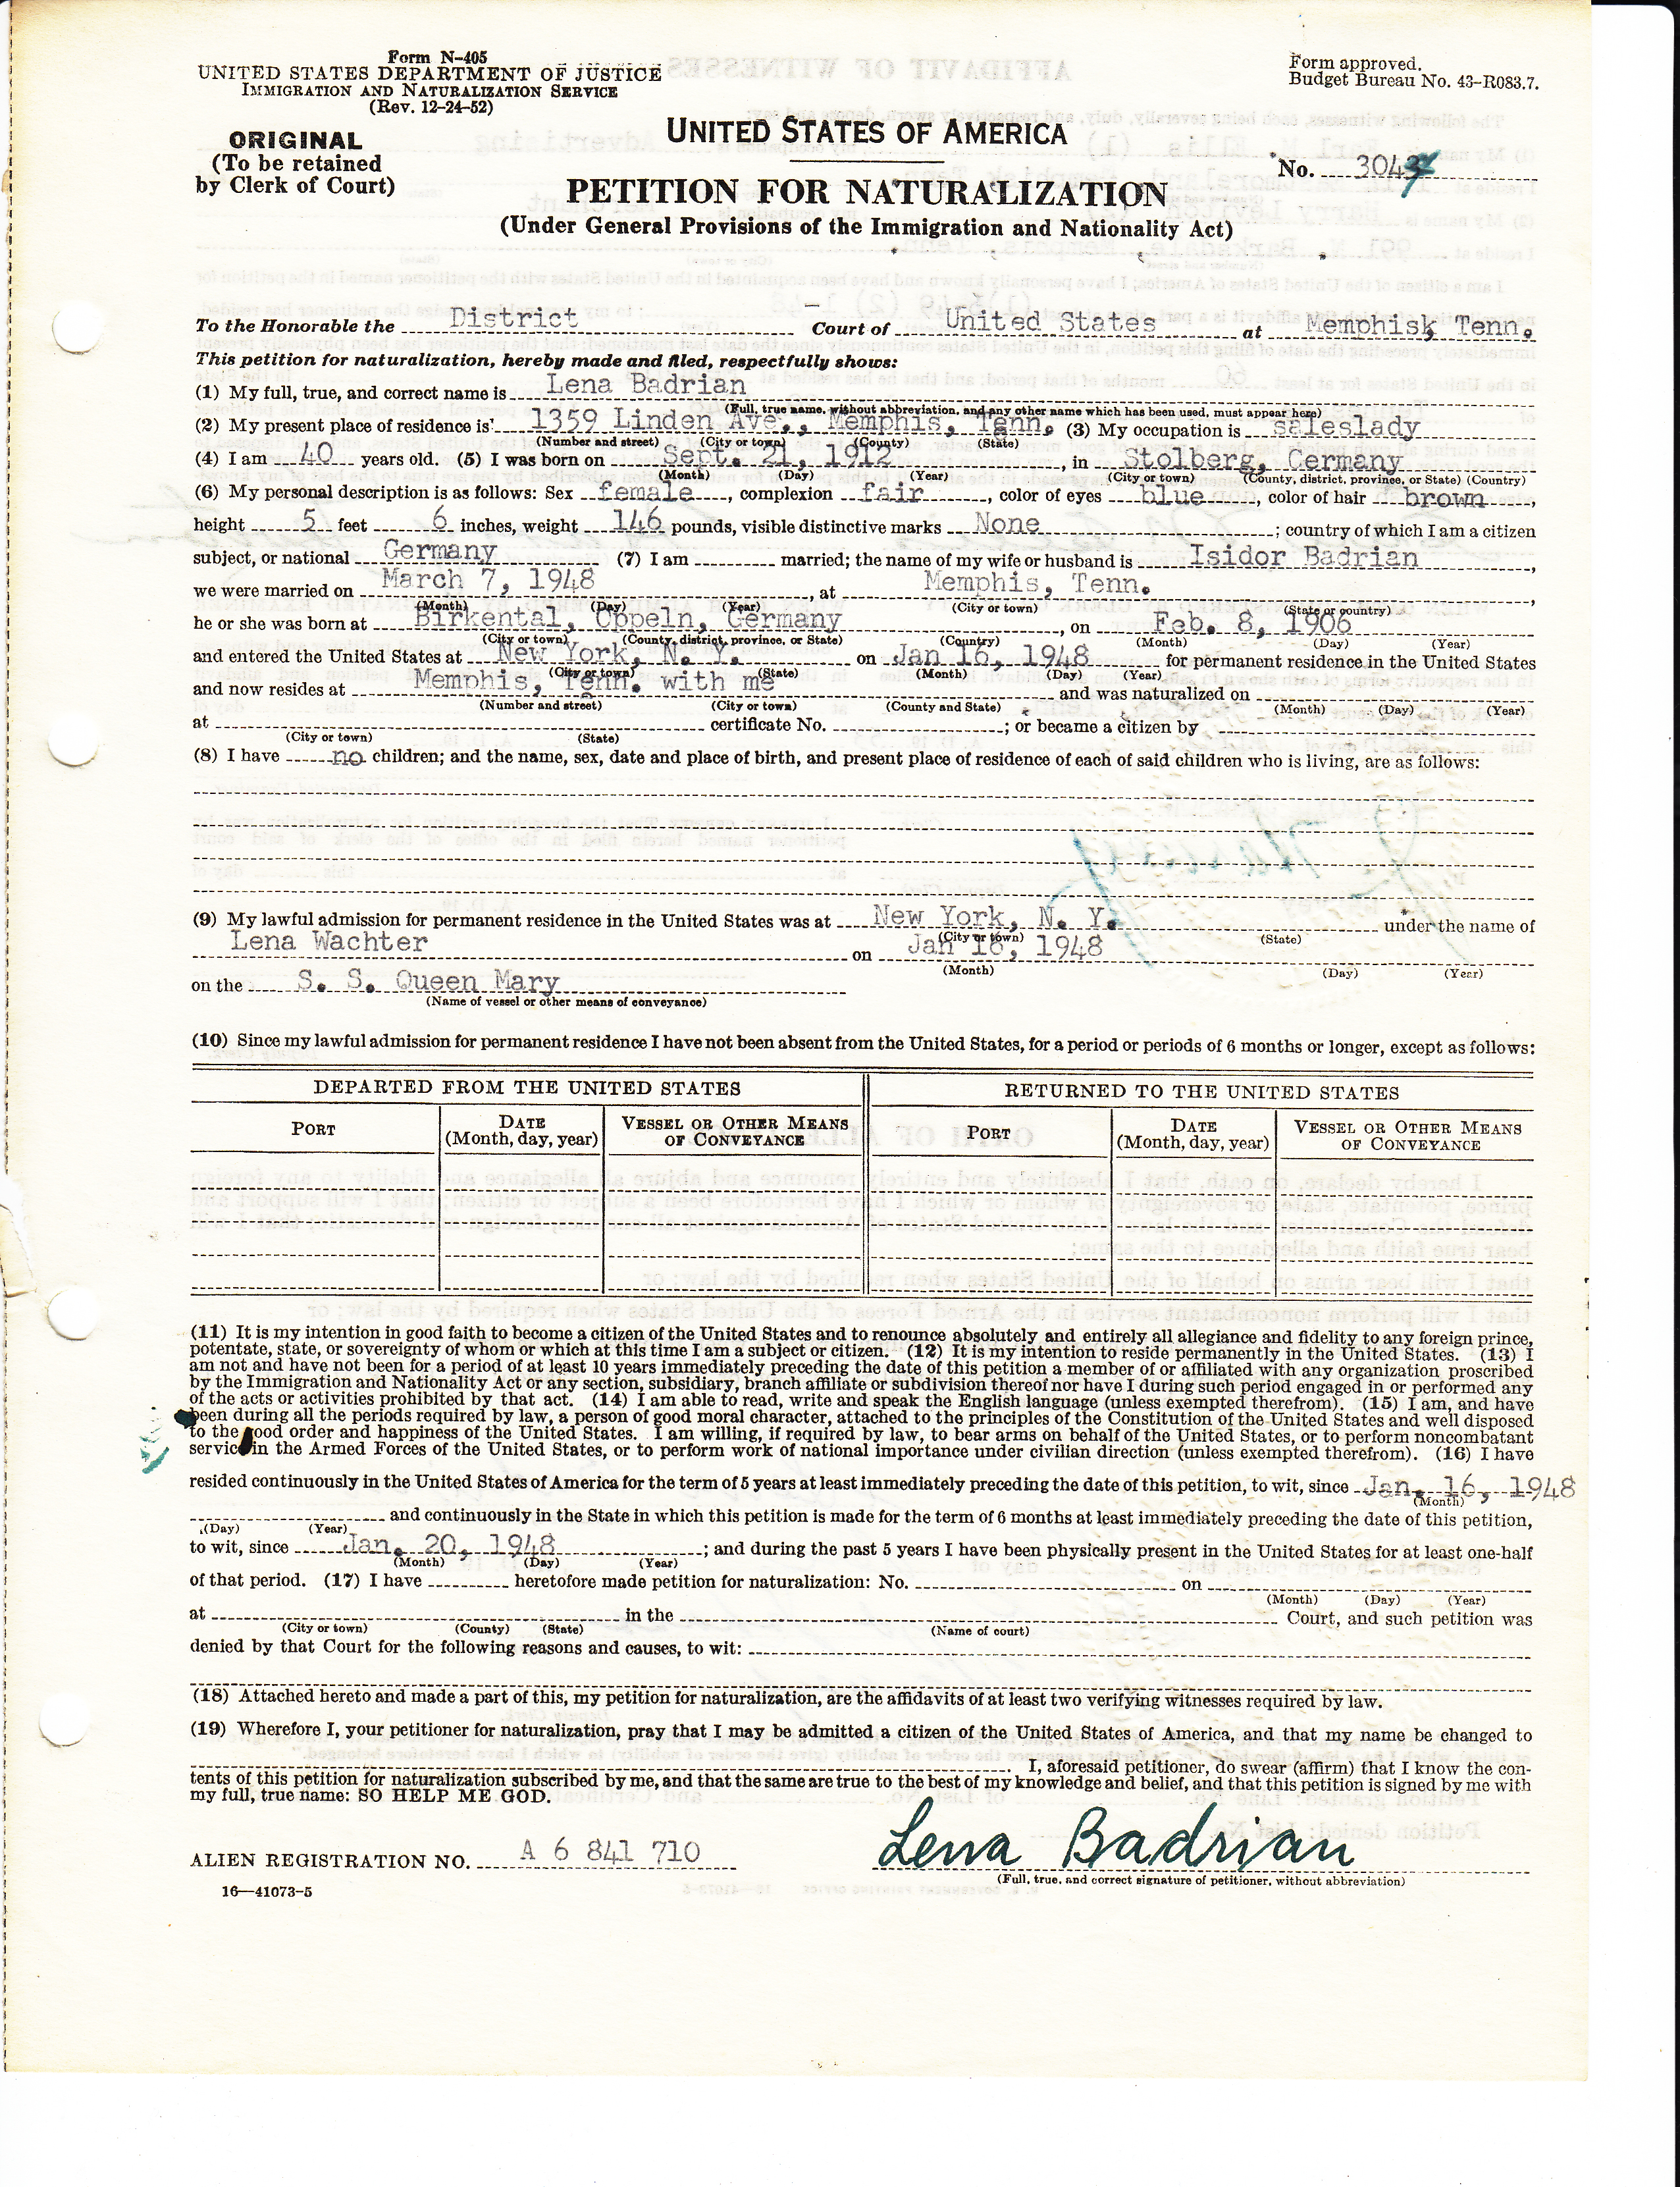 Form N-405
UNITED STATES DEPARTMENT OF JUSTICE
IMMIGRATION AND NATURALIZATION SERVICE
(Rev. 12-24-52)
Form approved.
Budget Bureau No. 43-R083.7.
ORIGINAL
(To be retained
by Clerk of Court)
UNITED STATES OF AMERICA
No. 304
PETITION FOR NATURALIZATION
(Under General Provisions of the Immigration and Nationality Act)
To the Honorable the District Court of United States at Memphisk Tenn.
This petition for naturalization, hereby made and filed, respectfully shows:
(1) My full, true, and correct name is Lena Badrian
(Full, true name, without abbreviation, and any other name which has been used, must appear here)
(2) My present place of residence is 1359 Linden Ave., Memphis, Tenn. (3) My occupation is saleslady
(Number and street) (City or town) (County) (State)
(4) I am 40 years old. (5) I was born on Sept. 21, 1912, in Stolberg, Germany
(Month) (Day) (Year) (City or town) (County, district, province, or State) (Country)
(6) My personal description is as follows: Sex female, complexion fair, color of eyes blue, color of hair brown,
height 5 feet 6 inches, weight 146 pounds, visible distinctive marks None; country of which I am a citizen
subject, or national Germany (7) I am married; the name of my wife or husband is Isidor Badrian,
we were married on March 7, 1948, at Memphis, Tenn.,
(Month) (Day) (Year) (City or town) (State or country)
he or she was born at Birkental, Oppeln, Germany, on Feb. 8, 1906
(City or town) (County, district, province, or State) (Country) (Month) (Day) (Year)
and entered the United States at New York, N. Y. on Jan 16, 1948 for permanent residence in the United States
(City or town) (State) (Month) (Day) (Year)
and now resides at Memphis, Tenn. with me and was naturalized on
(Number and street) (City or town) (County and State) (Month) (Day) (Year)
at certificate No. ; or became a citizen by
(City or town) (State)
(8) I have no children; and the name, sex, date and place of birth, and present place of residence of each of said children who is living, are as follows:
(9) My lawful admission for permanent residence in the United States was at New York, N. Y. under the name of
(City or town) (State)
Lena Wachter on Jan 16, 1948
(Month) (Day) (Year)
on the S. S. Queen Mary
(Name of vessel or other means of conveyance)
(10) Since my lawful admission for permanent residence I have not been absent from the United States, for a period or periods of 6 months or longer, except as follows:
DEPARTED FROM THE UNITED STATES RETURNED TO THE UNITED STATES
PORT DATE (Month, day, year) VESSEL OR OTHER MEANS OF CONVEYANCE PORT DATE (Month, day, year) VESSEL OR OTHER MEANS OF CONVEYANCE
(11) It is my intention in good faith to become a citizen of the United States and to renounce absolutely and entirely all allegiance and fidelity to any foreign prince,
potentate, state, or sovereignty of whom or which at this time I am a subject or citizen. (12) It is my intention to reside permanently in the United States. (13) I
am not and have not been for a period of at least 10 years immediately preceding the date of this petition a member of or affiliated with any organization proscribed
by the Immigration and Nationality Act or any section, subsidiary, branch affiliate or subdivision thereof nor have I during such period engaged in or performed any
of the acts or activities prohibited by that act. (14) I am able to read, write and speak the English language (unless exempted therefrom). (15) I am, and have
been during all the periods required by law, a person of good moral character, attached to the principles of the Constitution of the United States and well disposed
to the good order and happiness of the United States. I am willing, if required by law, to bear arms on behalf of the United States, or to perform noncombatant
service in the Armed Forces of the United States, or to perform work of national importance under civilian direction (unless exempted therefrom). (16) I have
resided continuously in the United States of America for the term of 5 years at least immediately preceding the date of this petition, to wit, since Jan. 16, 1948
(Month)
and continuously in the State in which this petition is made for the term of 6 months at least immediately preceding the date of this petition,
(Day) (Year)
to wit, since Jan. 20, 1948; and during the past 5 years I have been physically present in the United States for at least one-half
(Month) (Day) (Year)
of that period. (17) I have heretofore made petition for naturalization: No. on
(Month) (Day) (Year)
at in the Court, and such petition was
(City or town) (County) (State) (Name of court)
denied by that Court for the following reasons and causes, to wit:
(18) Attached hereto and made a part of this, my petition for naturalization, are the affidavits of at least two verifying witnesses required by law.
(19) Wherefore I, your petitioner for naturalization, pray that I may be admitted a citizen of the United States of America, and that my name be changed to
I, aforesaid petitioner, do swear (affirm) that I know the con-
tents of this petition for naturalization subscribed by me, and that the same are true to the best of my knowledge and belief, and that this petition is signed by me with
my full, true name: SO HELP ME GOD.
ALIEN REGISTRATION NO. A 6 841 710 Lena Badrian
(Full, true, and correct signature of petitioner, without abbreviation)
16—41073-5